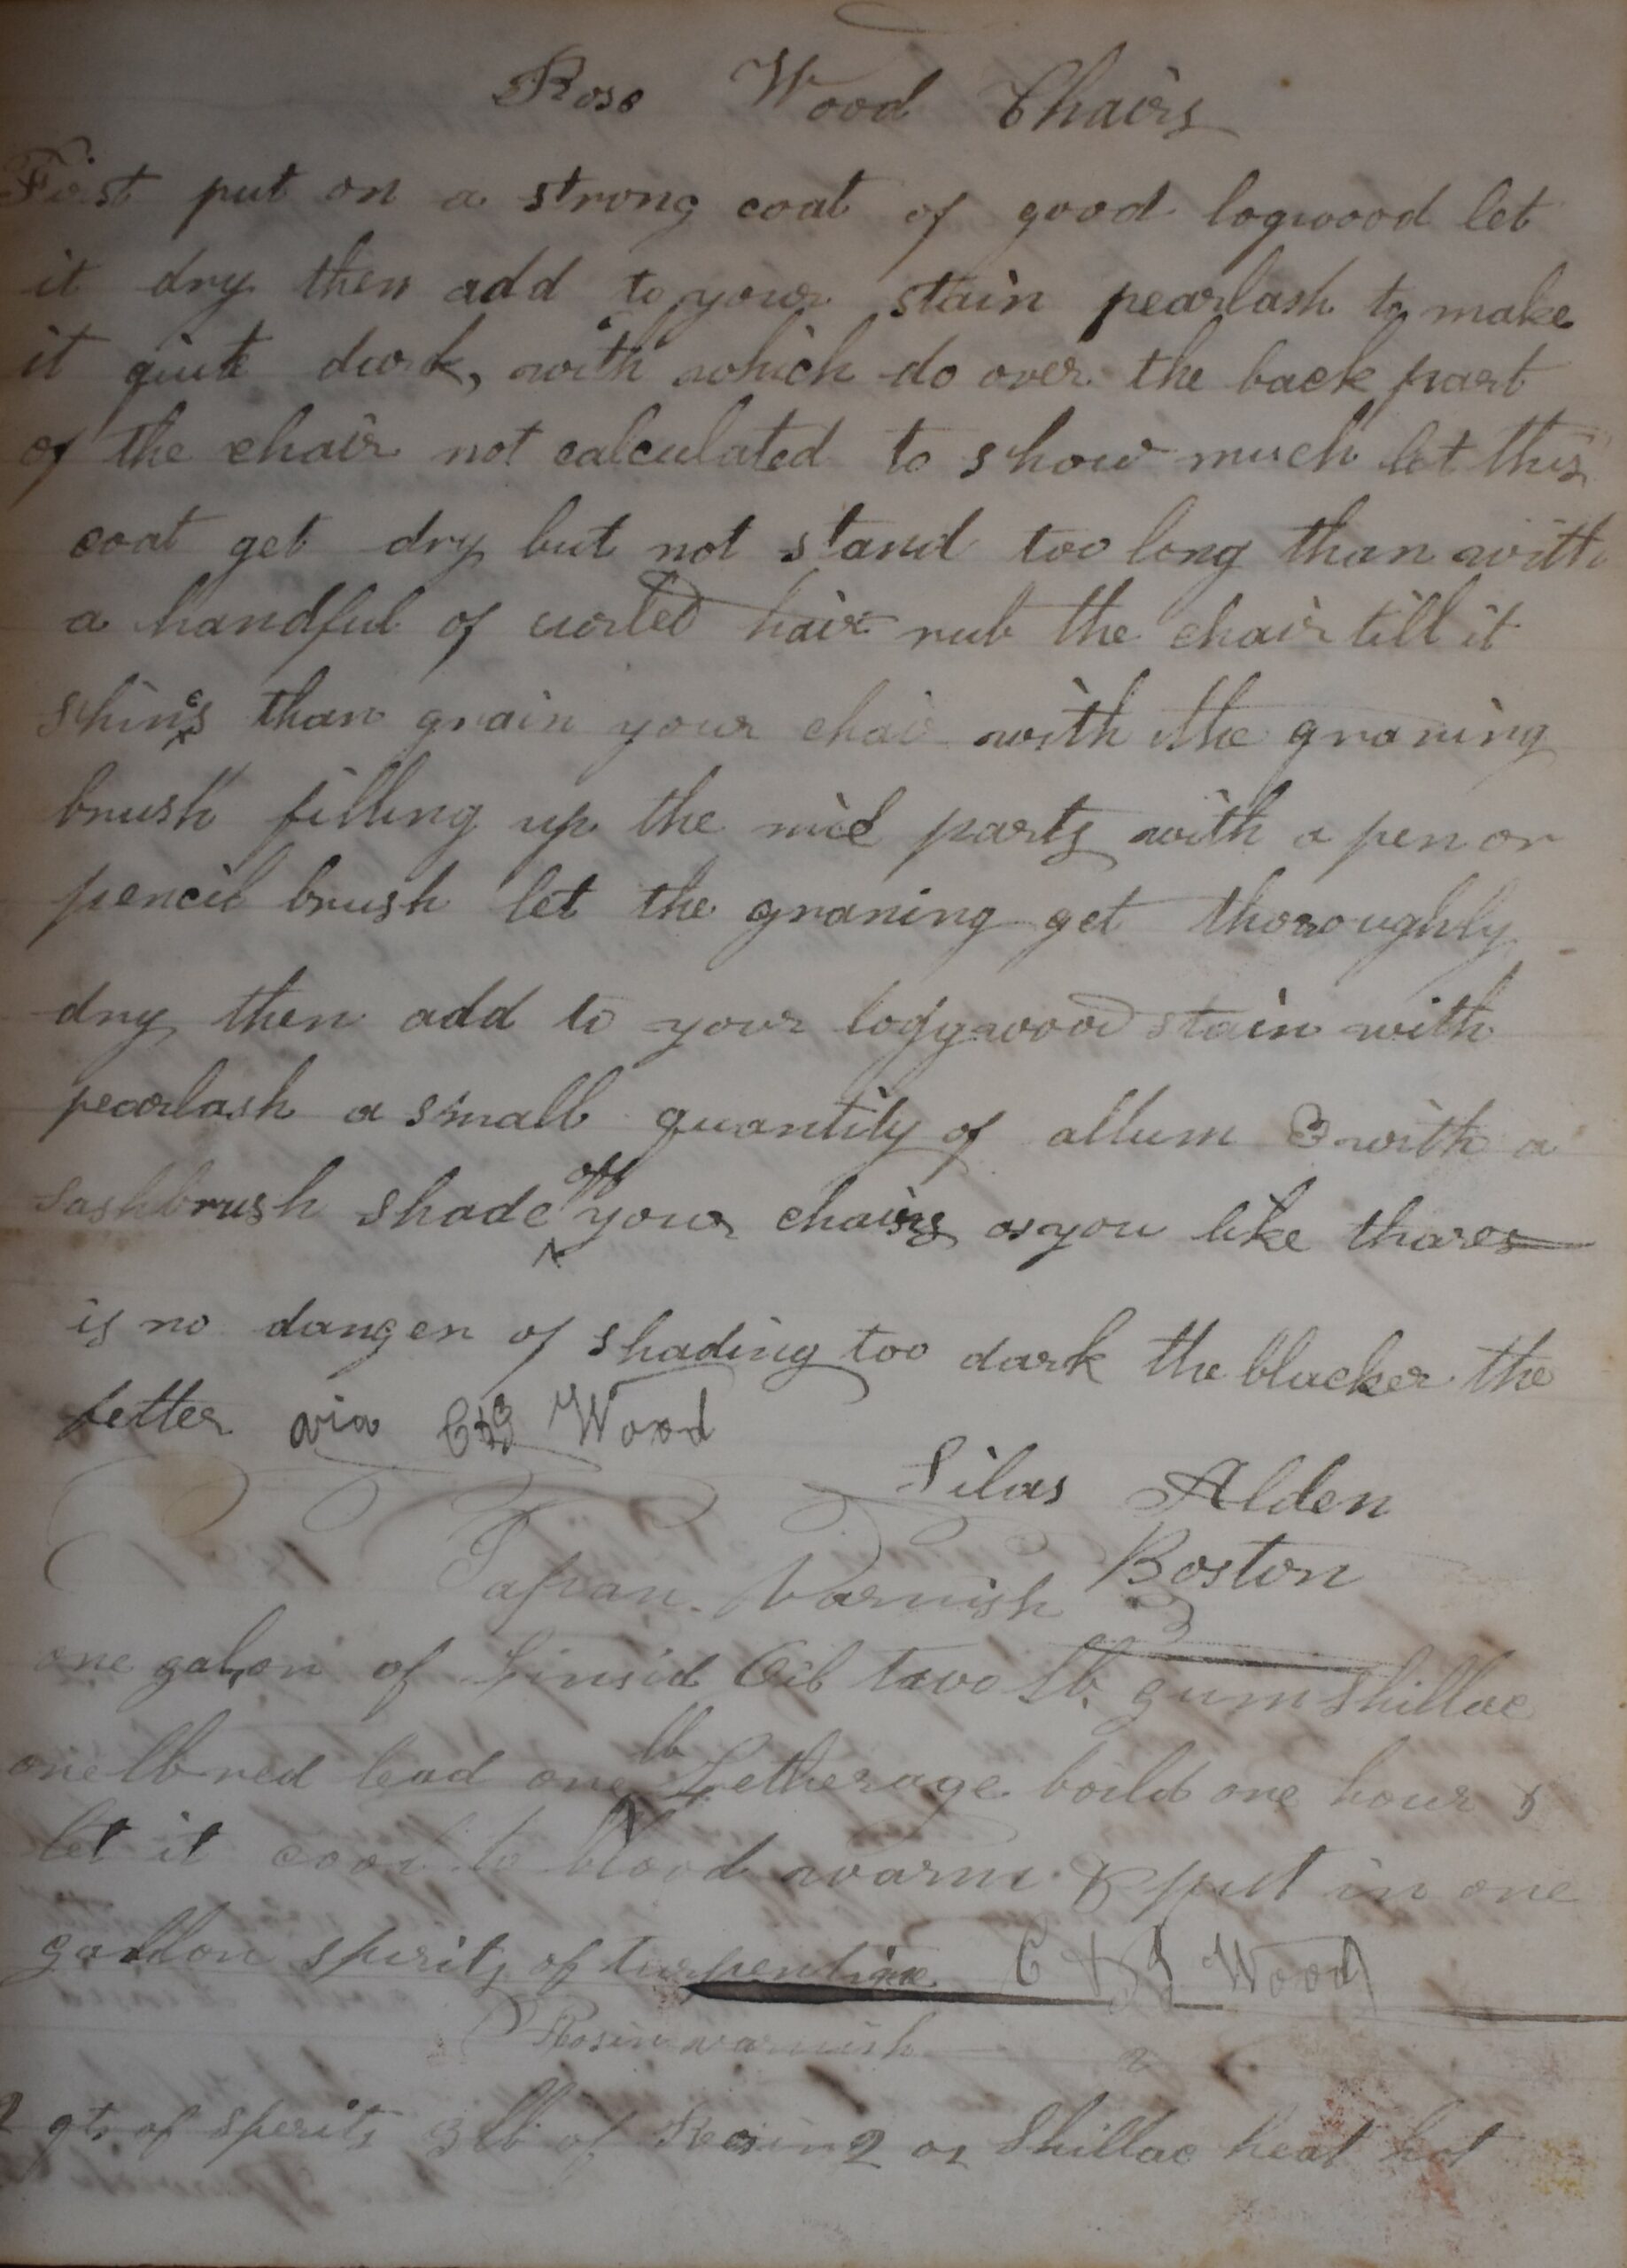 Rose Wood Chairs
First put on a strong coat of good logwood let
it dry then add to your stain pearlash to make
it quite dark, with which do over the back part
of the chair not calculated to show much let this
coat get dry but not stand too long than with
a handful of curled hair rub the chair till it
shines than grain your chair with the graning
brush filling up the mid parts with a pen or
pencil brush let the graning get thoroughly
dry then add to your logywood stain with
pearlash a small quantity of allum & with a
Sashbrush shade off your chairs as you like thares
is no danger of shading too dark the blacker the
better via C & J Wood
Silas Alden
Boston
Japan Varnish
one galon of Linsid Oil two lb. gum Shillac
one lb red lead one lb Letherage boild one hour &
let it cool to blood warm & put in one
gallon spirits of turpentine C & J Wood
Rosin varnish
2 qts of sperits 3 lb of Rosin 2 oz Shillac heat hot